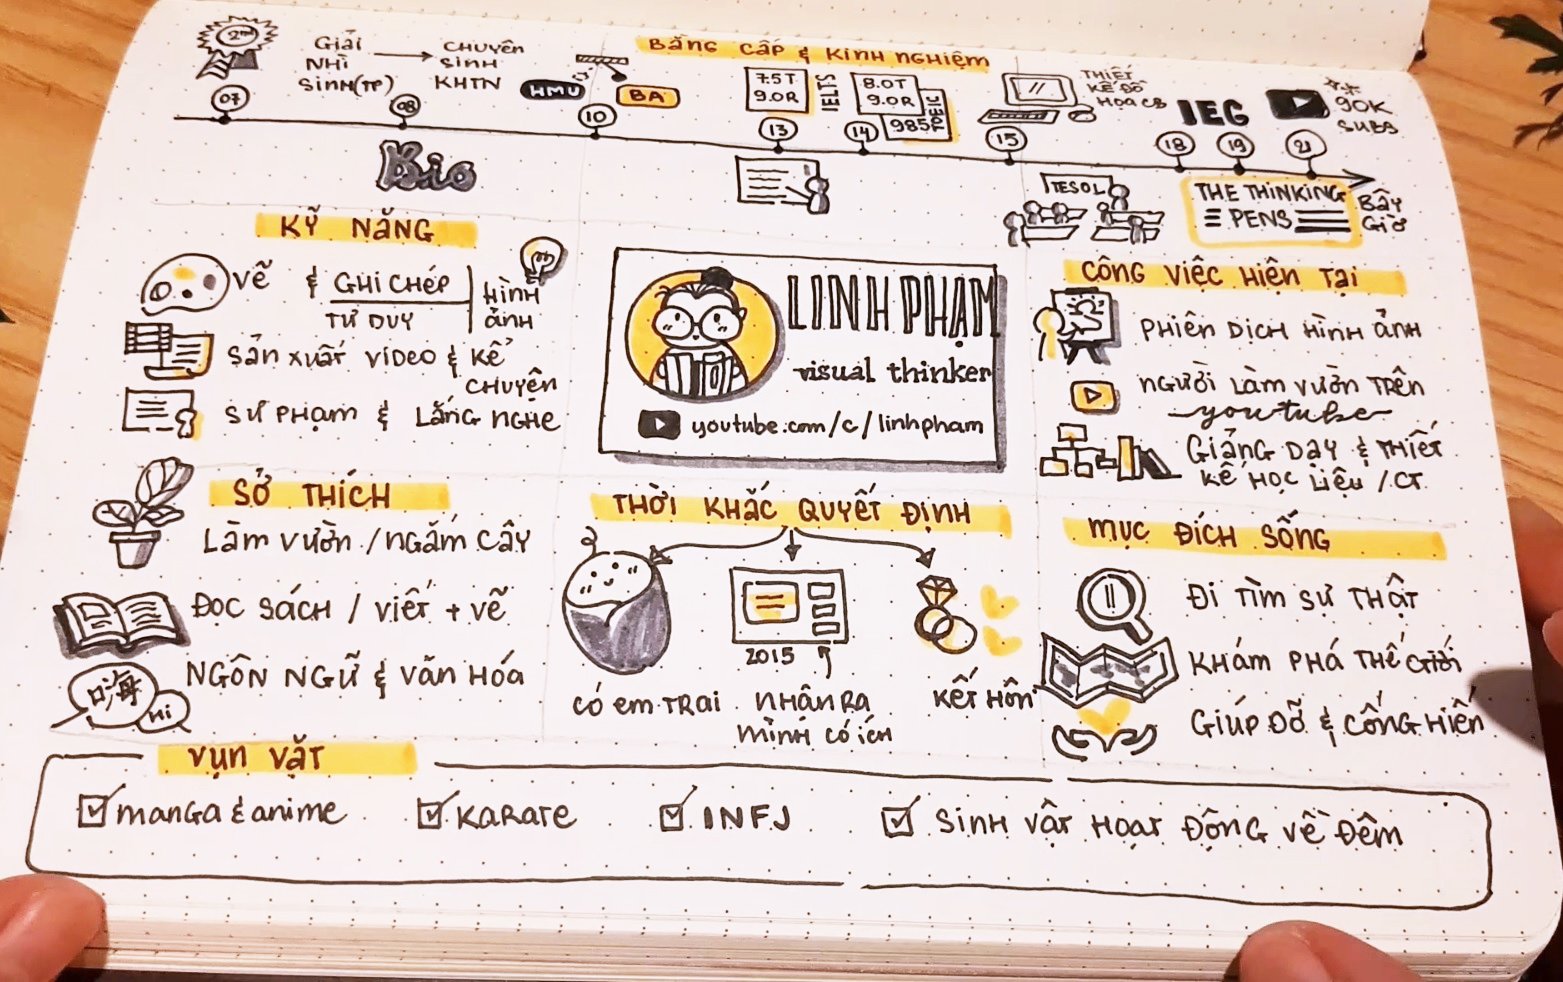 BẰNG CẤP & KINH NGHIỆM
2nd
GIẢI
NHÌ
SINH(TP)
CHUYÊN
SINH
KHTN
HMU
BA
7.5T
9.0R
IELTS
8.0T
9.0R
985
TOEIC
THIẾT
KẾ ĐỒ
HỌA CB
IEG
90K
SUBS
07
08
10
13
14
15
18
19
21
Bio
TESOL
THE THINKING
PENS
BÂY
GIỜ
KỸ NĂNG
VẼ & GHI CHÉP
TƯ DUY
HÌNH
ẢNH
SẢN XUẤT VIDEO & KỂ
CHUYỆN
SƯ PHẠM & LẮNG NGHE
LINH PHẠM
visual thinker
youtube.com/c/linhpham
CÔNG VIỆC HIỆN TẠI
PHIÊN DỊCH HÌNH ẢNH
NGƯỜI LÀM VƯỜN TRÊN
youtube
GIẢNG DẠY & THIẾT
KẾ HỌC LIỆU / CT
SỞ THÍCH
LÀM VƯỜN / NGẮM CÂY
ĐỌC SÁCH / VIẾT + VẼ
NGÔN NGỮ & VĂN HÓA
嗨
Hi
THỜI KHẮC QUYẾT ĐỊNH
CÓ EM TRAI
2015
NHẬN RA
MÌNH CÓ ÍCH
KẾT HÔN
MỤC ĐÍCH SỐNG
ĐI TÌM SỰ THẬT
KHÁM PHÁ THẾ GIỚI
GIÚP ĐỠ & CỐNG HIẾN
VỤN VẶT
MANGA & anime
KARATE
INFJ
SINH VẬT HOẠT ĐỘNG VỀ ĐÊM